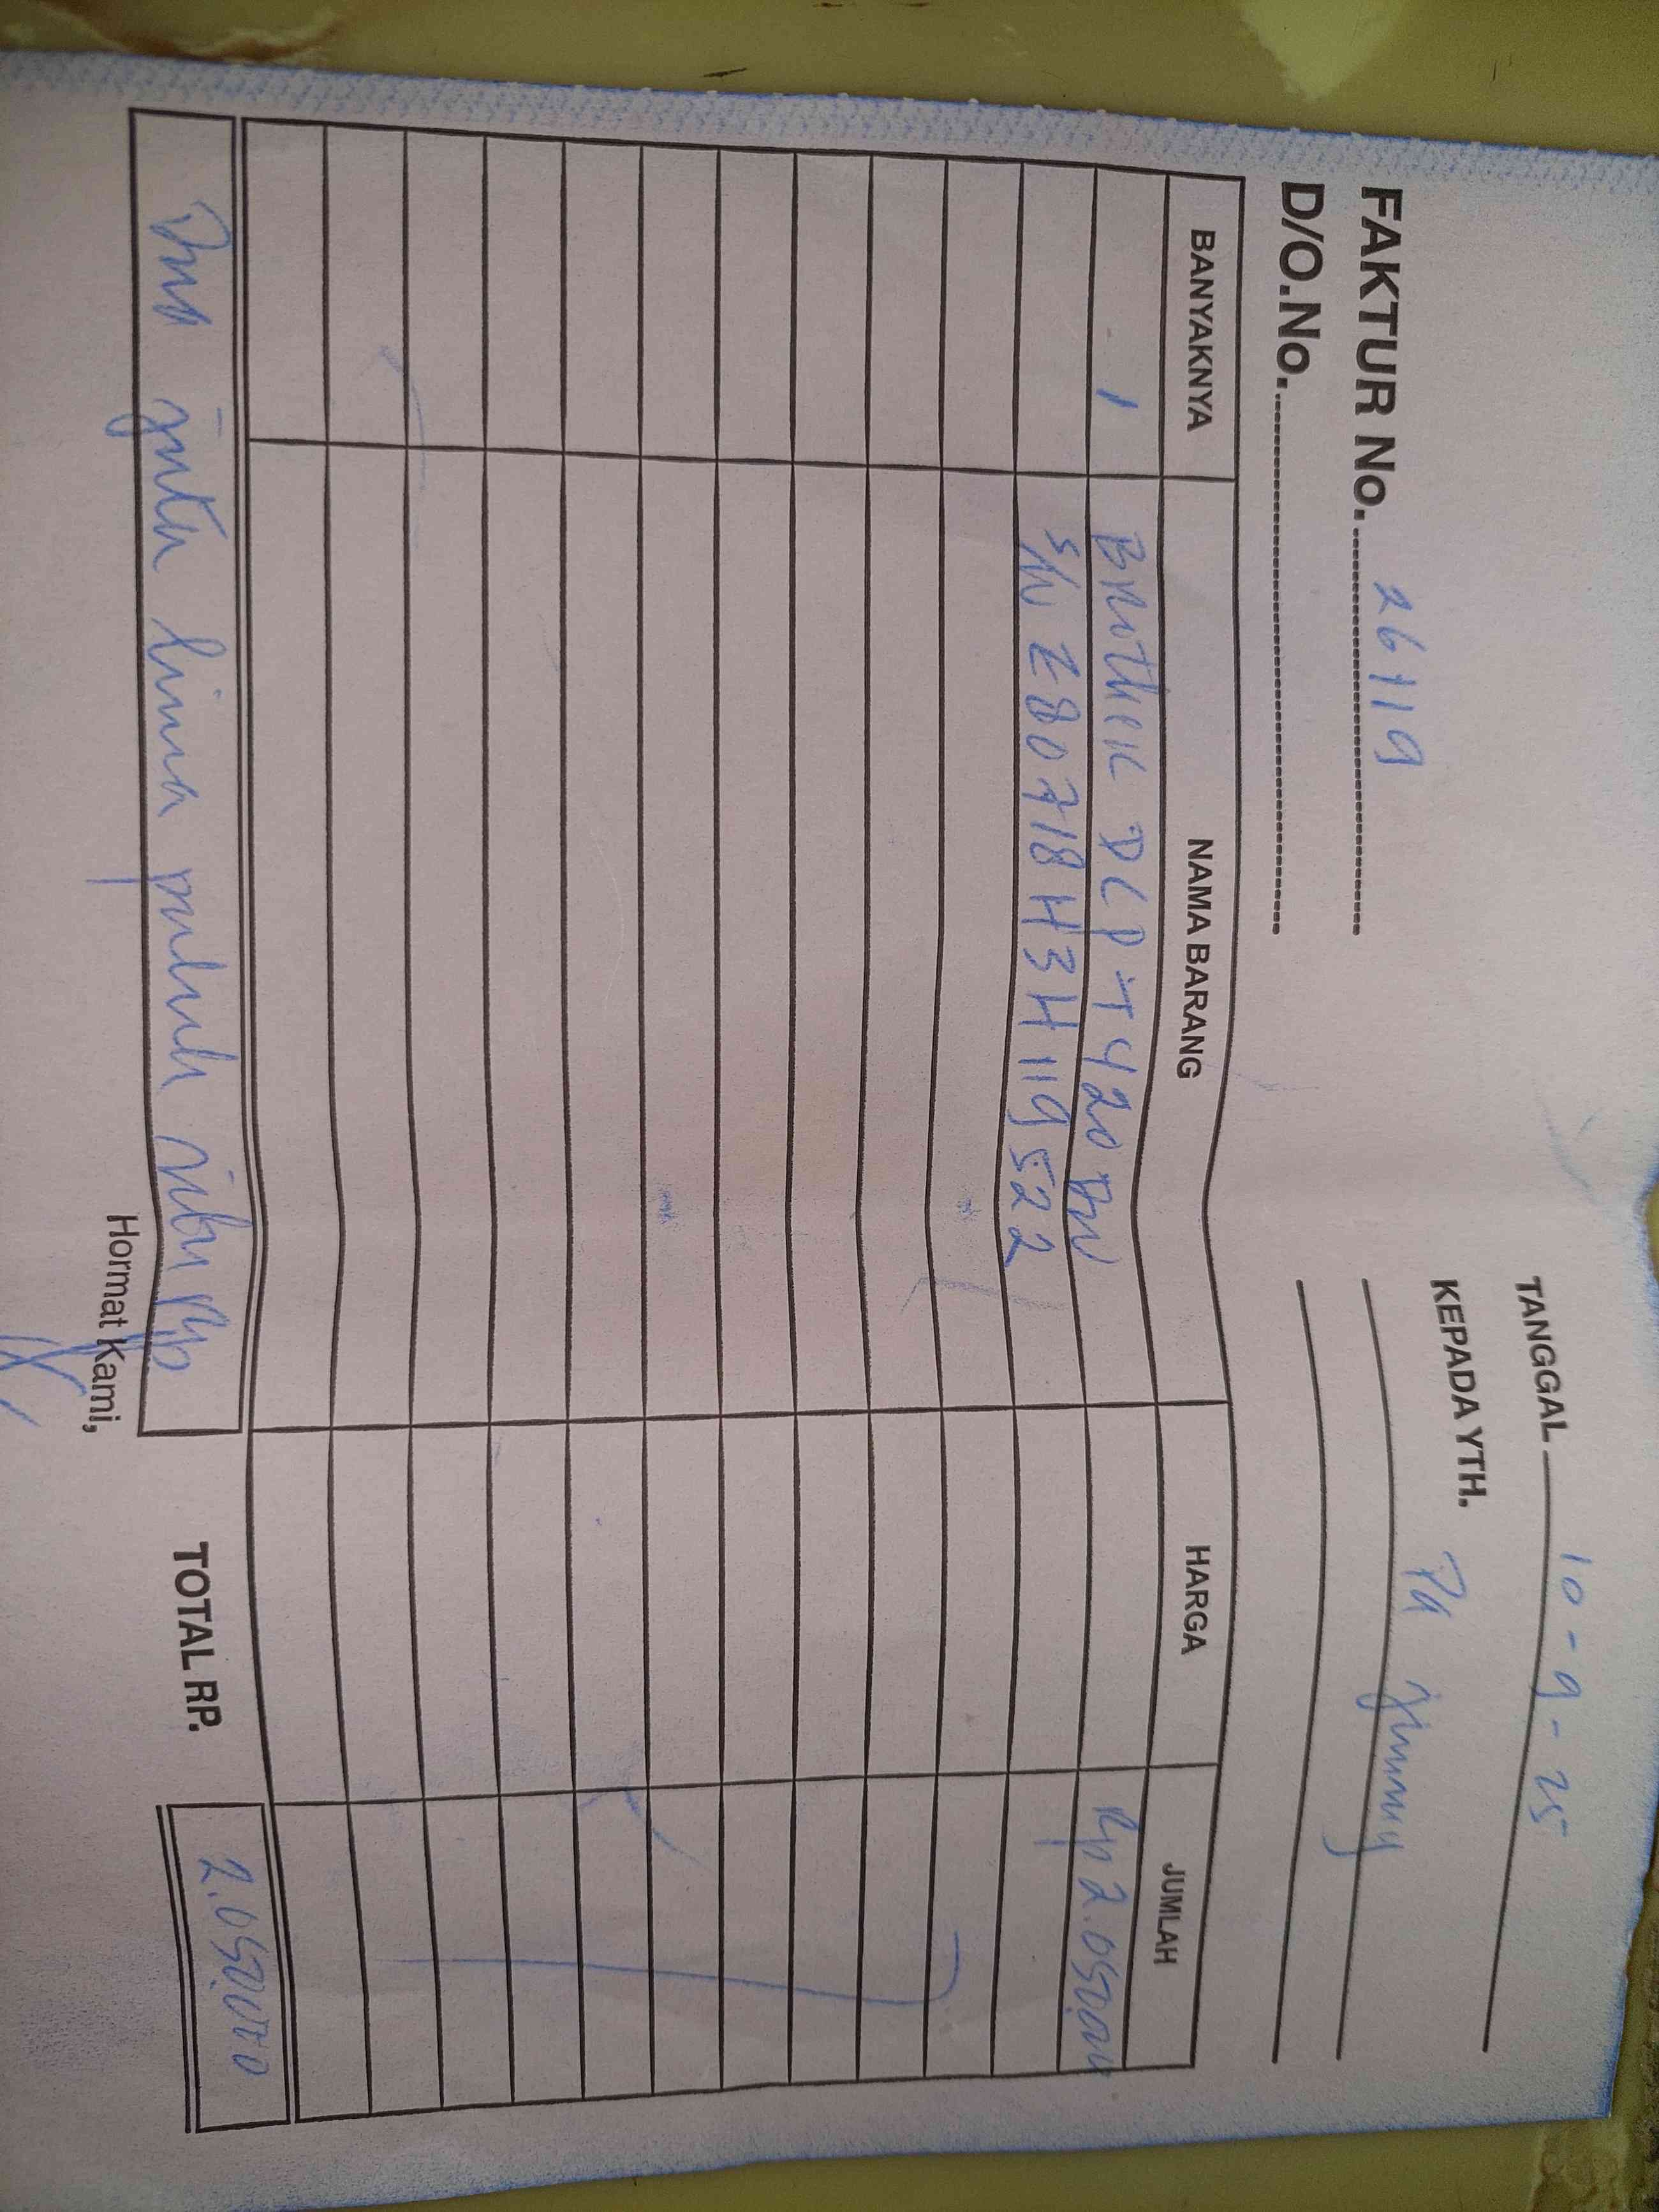 TANGGAL 10-9-25
FAKTUR No. 26119
KEPADA YTH. Pa Jimmy
D/O.No.
BANYAKNYA NAMA BARANG HARGA JUMLAH
1 Brother DCP T420DW Rp 2.050.000
S/N E80718H3H119522
Dua juta lima puluh ribu Rp
TOTAL RP. 2.050.000
Hormat Kami,